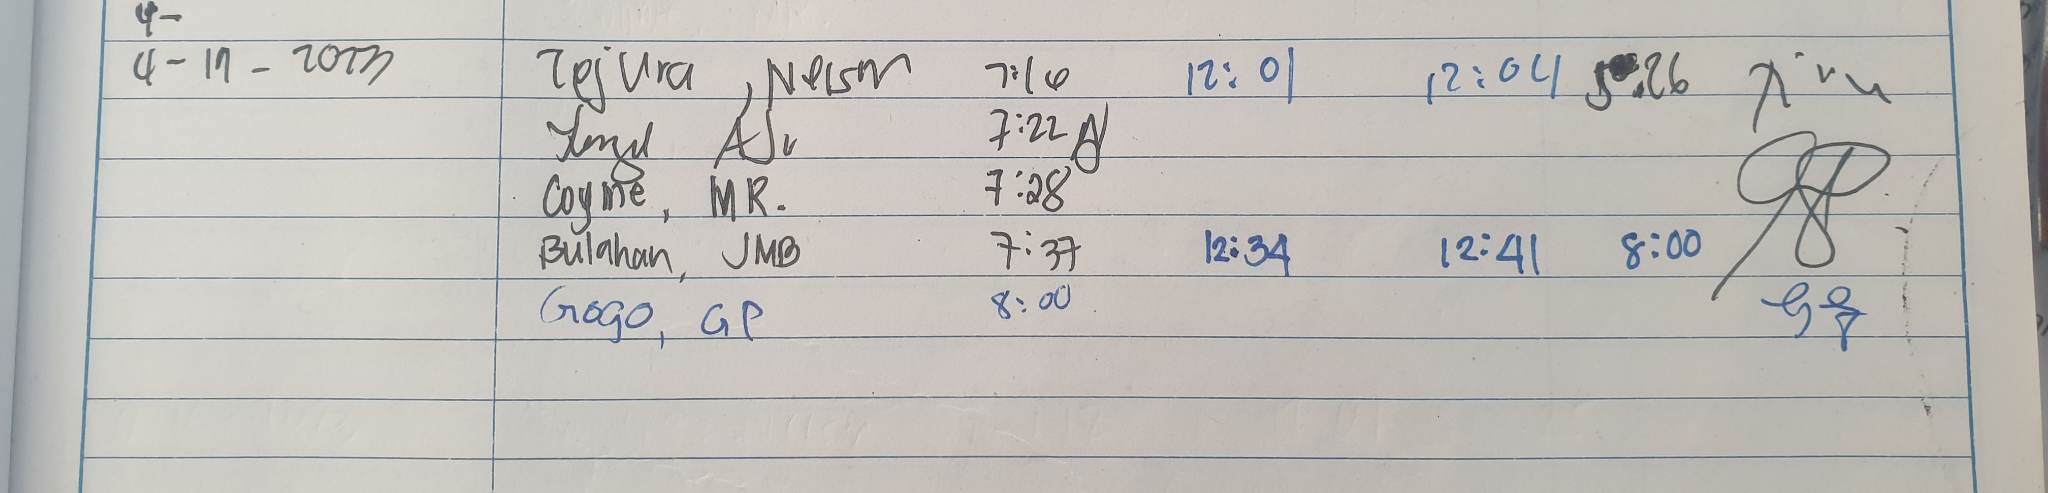 4-
4-17-2023
Tejura, Nelson 7:16 12:01 12:04 5:26
7:22
Coyme, MR. 7:28
Bulahan, JMB 7:37 12:34 12:41 8:00
Gogo, GP 8:00